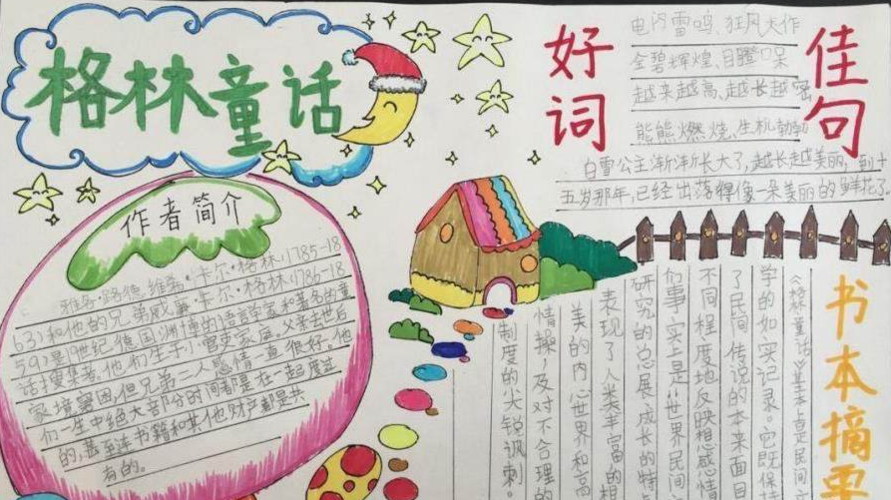 格林童话
作者简介
雅各·路德维希·卡尔·格林(1785-18
63)和他的兄弟威廉·卡尔·格林(1786-18
59)是19世纪德国渊博的语言学家和著名的童
话搜集者。他们生于小官吏家庭。父亲去世后
家境窘困,但兄弟二人感情一直很好。他
们一生中绝大部分时间都是在一起度过
的,甚至连书籍和其他财产都是共
有的。
好词
佳句
电闪雪鸣、狂风大作
金碧辉煌、目瞪口呆
越来越高、越长越密
熊熊燃烧、生机勃勃
白雪公主渐渐长大了,越长越美丽,到十
五岁那年,已经出落得像一朵美丽的鲜花了
书本摘要
《格林童话》基本上是民间
学的如实记录。它既保
了民间传说的本来面目
不同程度地反映相感性
们事实上是"世界民间
研究的总展成长的特点
表现了人类丰富的相
美的内心世界和高
情操,及对不合理的
制度的尖锐讽刺。